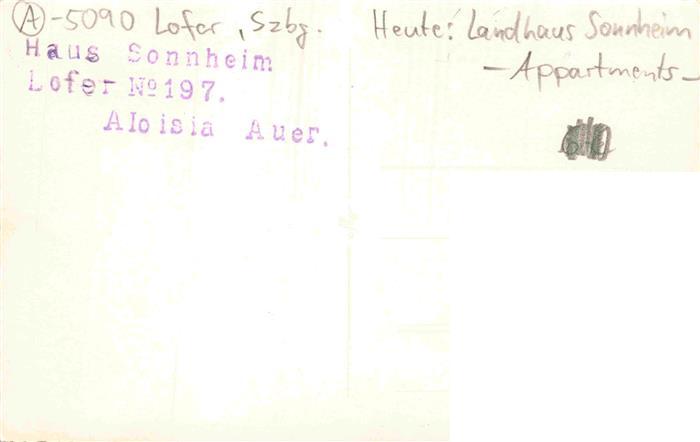 (A)-5090 Lofer, Szbg.
Haus Sonnheim
Lofer No 197.
Aloisia Auer.
Heute: Landhaus Sonnheim
-Appartments-